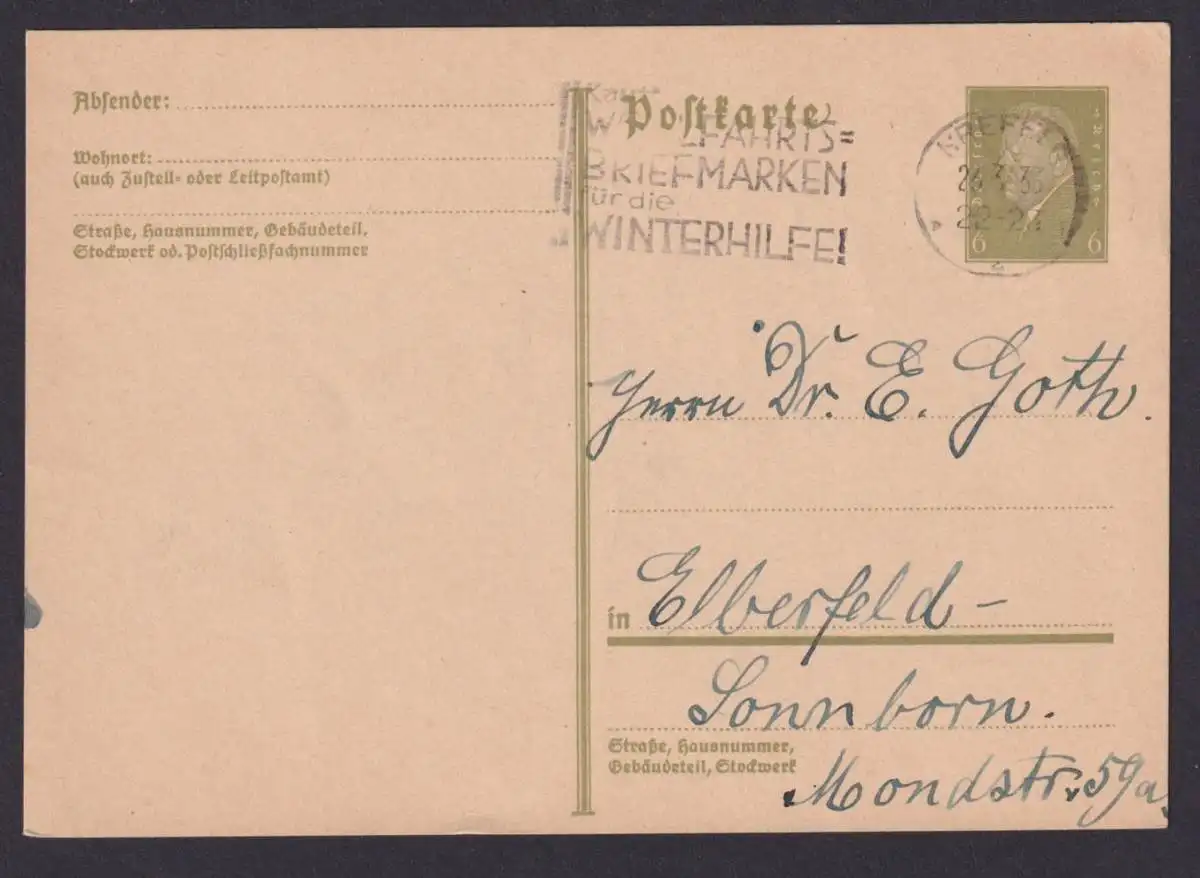 Absender:
Wohnort:
(auch Zustell- oder Leitpostamt)
Straße, Hausnummer, Gebäudeteil,
Stockwerk od. Postschließfachnummer
Postkarte
WOHLFAHRTS=
BRIEFMARKEN
für die
WINTERHILFE!
KREFELD
22-2
6 6
Herrn Dr. E. Goth.
in Elberfeld-
Sonnborn.
Straße, Hausnummer,
Gebäudeteil, Stockwerk
Mondstr. 59a